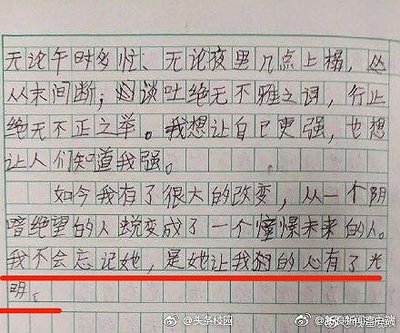 无论午时多忙、无论夜里几点上榻,从
从未间断;谈吐绝无不雅之词,行止
绝无不正之举。我想让自己更强,也想
让人们知道我强。
如今我有了很大的改变,从一个阴
暗绝望的人蜕变成了一个憧憬未来的人。
我不会忘记她,是她让我的心有了光
明。
@头条校园